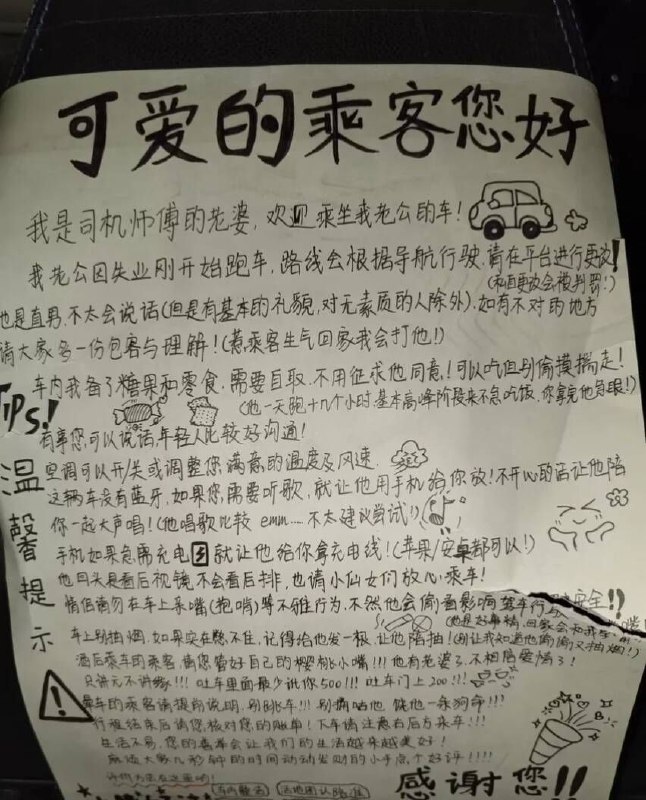 可爱的乘客您好
我是司机师傅的老婆,欢迎乘坐我老公的车!
我老公因失业刚开始跑车,路线会根据导航行驶,请在平台进行更改!
(私自更改会被判罚!)
他是直男,不太会说话(但是有基本的礼貌,对无素质的人除外).如有不对的地方
请大家多一份包容与理解!(惹乘客生气回家我会打他!)
车内我备了糖果和零食.需要自取.不用征求他同意!可以吃但别偷摸揣走!
(他一天跑十几个小时.基本高峰阶段来不急吃饭,你拿完他
TIPS!
有事您可以说话,年轻人比较好沟通!
温馨提示
空调可以开/关或调整您满意的温度及风速.
这辆车没有蓝牙,如果您需要听歌,就让他用手机给你放!不开心的话让他陪
你一起大声唱!(他唱歌比较 emm.....不太建议尝试!)
手机如果急需充电就让他给你拿充电线!(苹果/安卓都可以!)
他回头是看后视镜不会看后排,也请小仙女们放心乘车!
情侣请勿在车上亲嘴(抱啃)等不雅行为,不然他会偷看影响驾车行安全!!
车上别抽烟.如果实在憋不住,记得给他发一根,让他陪抽!(别让我知道他偷偷又抽烟!)
酒后乘车的乘客请您管好自己的樱桃小嘴!!!他有老婆了.不相信爱情了!
只讲元不讲缘!!!吐车里面最少讹你500!!!吐车门上200!!!
晕车的乘客请提前说明,别
行程结束后请您核对您的账单!下车请注意右后方来车!!!
生活不易,您的善举会让我们的生活越来越美好!
麻烦大家几秒钟的时间动动发财的小手点个好评!!!!
感谢您!!